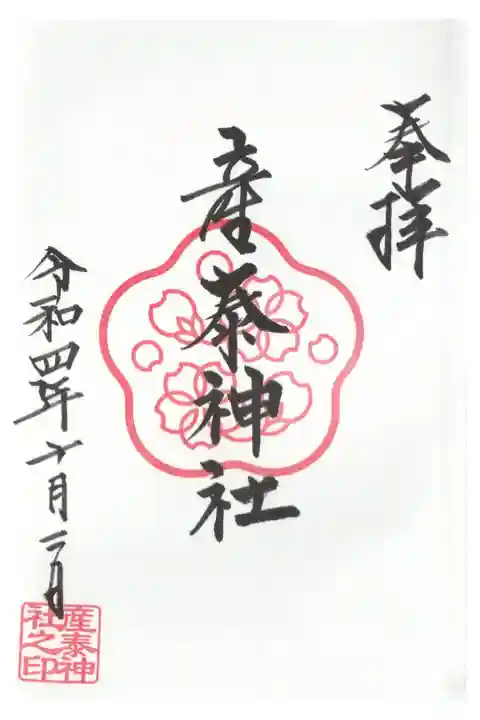 奉拝
産泰神社
令和四年十月二日
産泰神
社之印